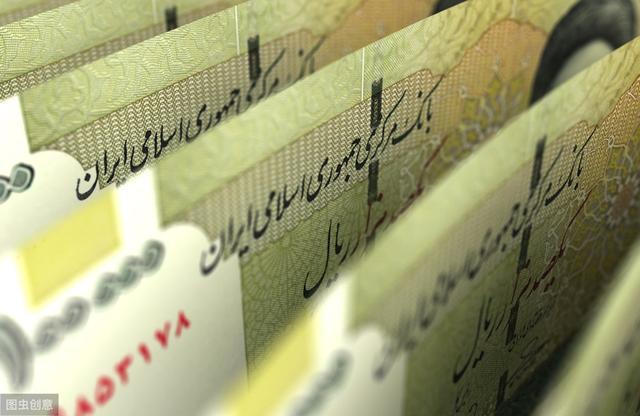 بانک مرکزی جمهوری اسلامی ایران
بانک مرکزی جمهوری اسلامی ایران
یکصد هزار ریال
۸۵۳۱۷۸
بانک مرکزی جمهوری اسلامی ایران
یکصد هزار ریال
图虫创意